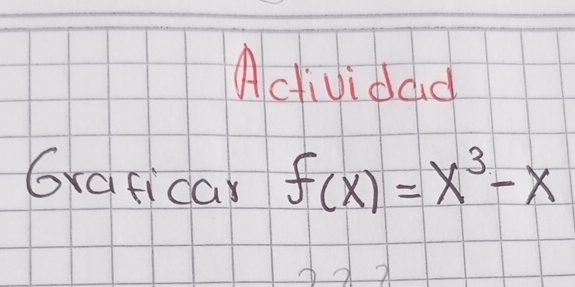 Actividad
Graficar f(x) = x³ - x